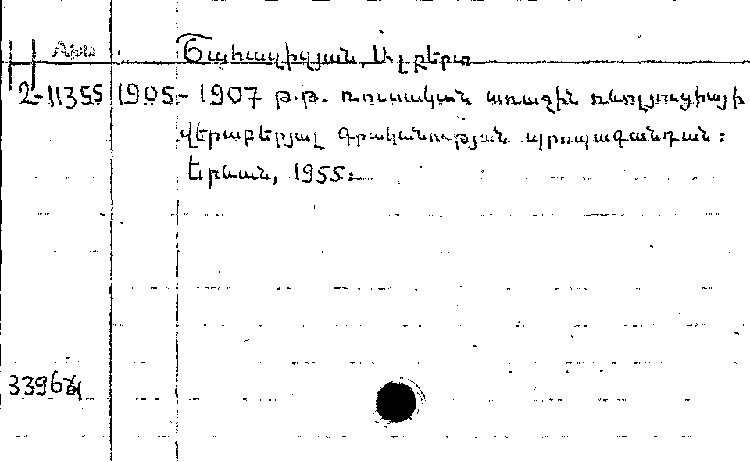 Շահազիզյան, Ալբերտ
2-11355 1905-1907 թ.թ. ռուսական առաջին ռևոլյուցիայի
վերաբերյալ գրականության պրոպագանդան:
Երևան, 1955: